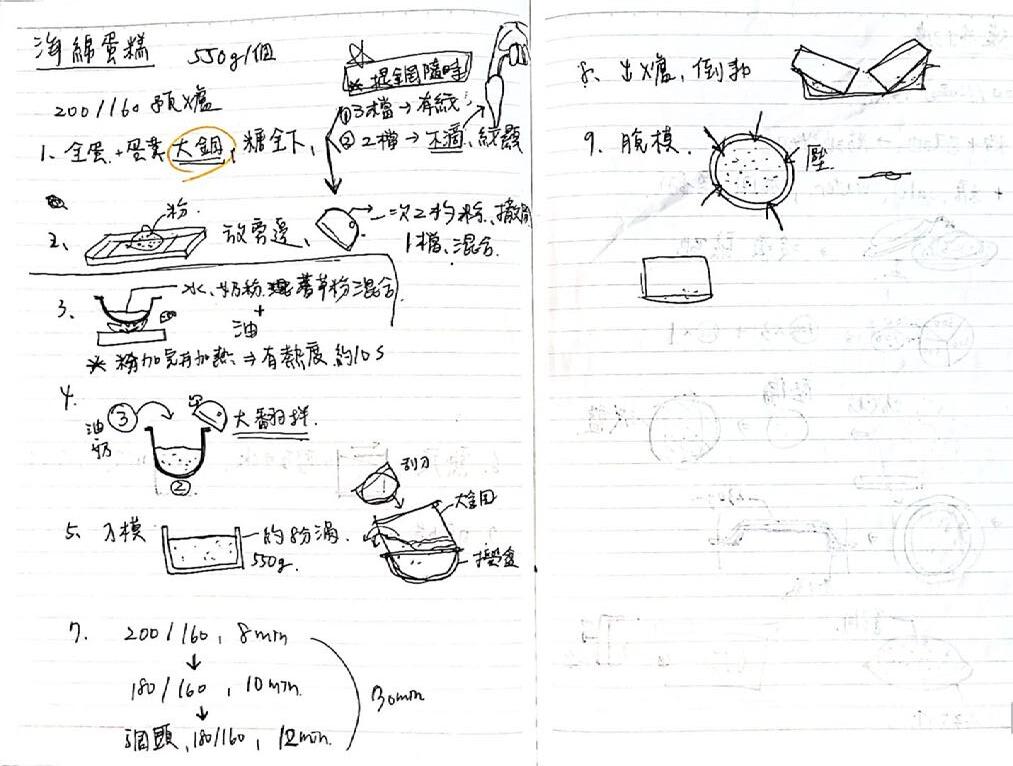 海綿蛋糕 550g/個
200/160 預火爐
※ 提鋼隨時
①3檔→有紋
②2檔→不滴、紋顯
1、全蛋+蛋黃 大鋼, 糖全下、
粉.
2、 放旁邊、 →一次2杓粉、撒開
1檔、混合.
3、 水、奶粉 混合
+
油
※ 粉加完再加熱⇒有熱度 約10s
4、
③ 油奶 大翻拌.
②
5、入模 約8分滿.
550g.
刮刀
大鋼
7. 200/160, 8min
↓
180/160, 10min.
↓
調頭, 180/160, 12min.
30min
8、出火爐,倒扣
9、脫模. 壓.